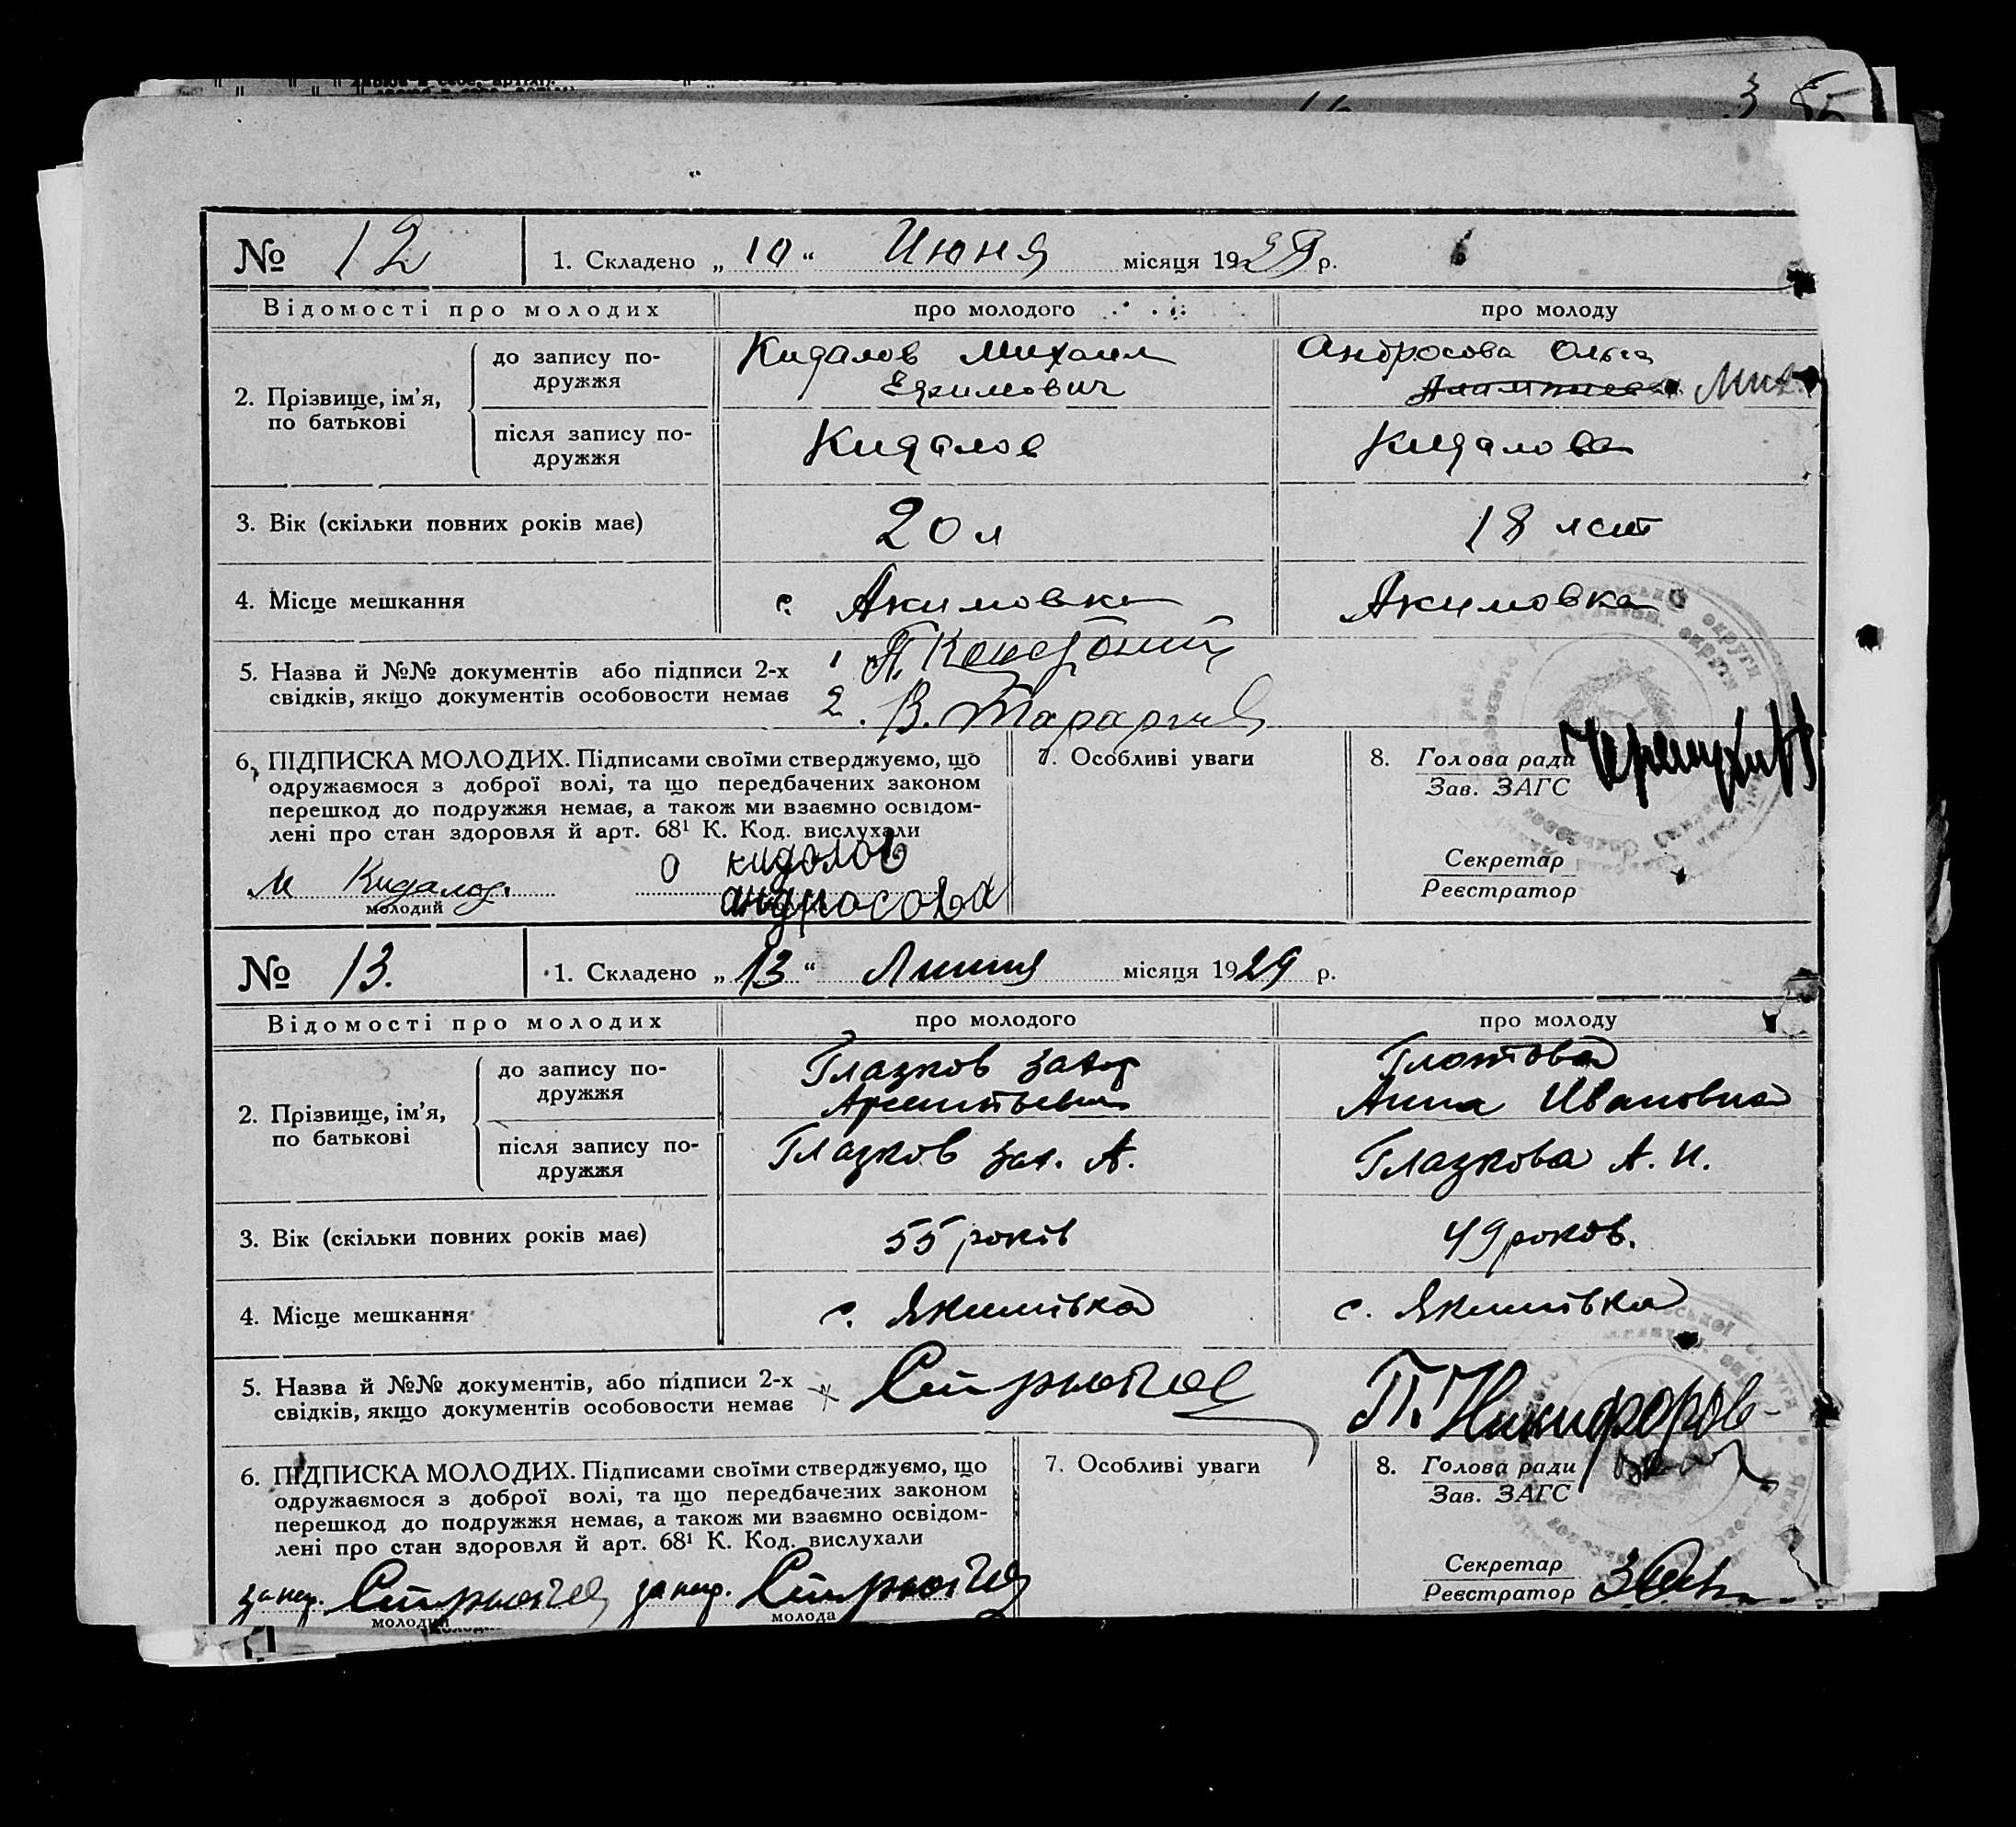 № 12
1. Складено „ 10 “ Июня місяця 1929 р.
Відомості про молодих
про молодого
про молоду
2. Прізвище, ім’я, по батькові
до запису по-
дружжя
Кидалов Михаил
Ефимович
Андросова Ольга
Мих.
після запису по-
дружжя
Кидалов
Кидалова
3. Вік (скільки повних років має)
20 л
18 лет
4. Місце мешкання
с. Акимовка
Акимовка
5. Назва й №№ документів або підписи 2-х
свідків, якщо документів особовости немає
1
2. В.
6. ПІДПИСКА МОЛОДИХ. Підписами своїми стверджуємо, що
одружаємося з доброї волі, та що передбачених законом
перешкод до подружжя немає, а також ми взаємно освідом-
лені про стан здоровля й арт. 68¹ К. Код. вислухали
М Кидалов.
молодий
О кидолов
андросова
7. Особливі уваги
8. Голова ради
Зав. ЗАГС
Секретар
Реєстратор
№ 13.
1. Складено „ 13 “ Липня місяця 1929 р.
Відомості про молодих
про молодого
про молоду
2. Прізвище, ім’я,
по батькові
до запису по-
дружжя
Глазков Захар
Глотова
Анна Ивановна
після запису по-
дружжя
Глазков Зах. А.
Глазкова А. И.
3. Вік (скільки повних років має)
55 років
49 роков.
4. Місце мешкання
с. Якимівка
с. Якимівка
5. Назва й №№ документів, або підписи 2-х
свідків, якщо документів особовости немає
П. Никифоров
6. ПІДПИСКА МОЛОДИХ. Підписами своїми стверджуємо, що
одружаємося з доброї волі, та що передбачених законом
перешкод до подружжя немає, а також ми взаємно освідом-
лені про стан здоровля й арт. 68¹ К. Код. вислухали
за нег.
молодий
за нер.
молода
7. Особливі уваги
8. Голова ради
Зав. ЗАГС
Секретар
Реєстратор